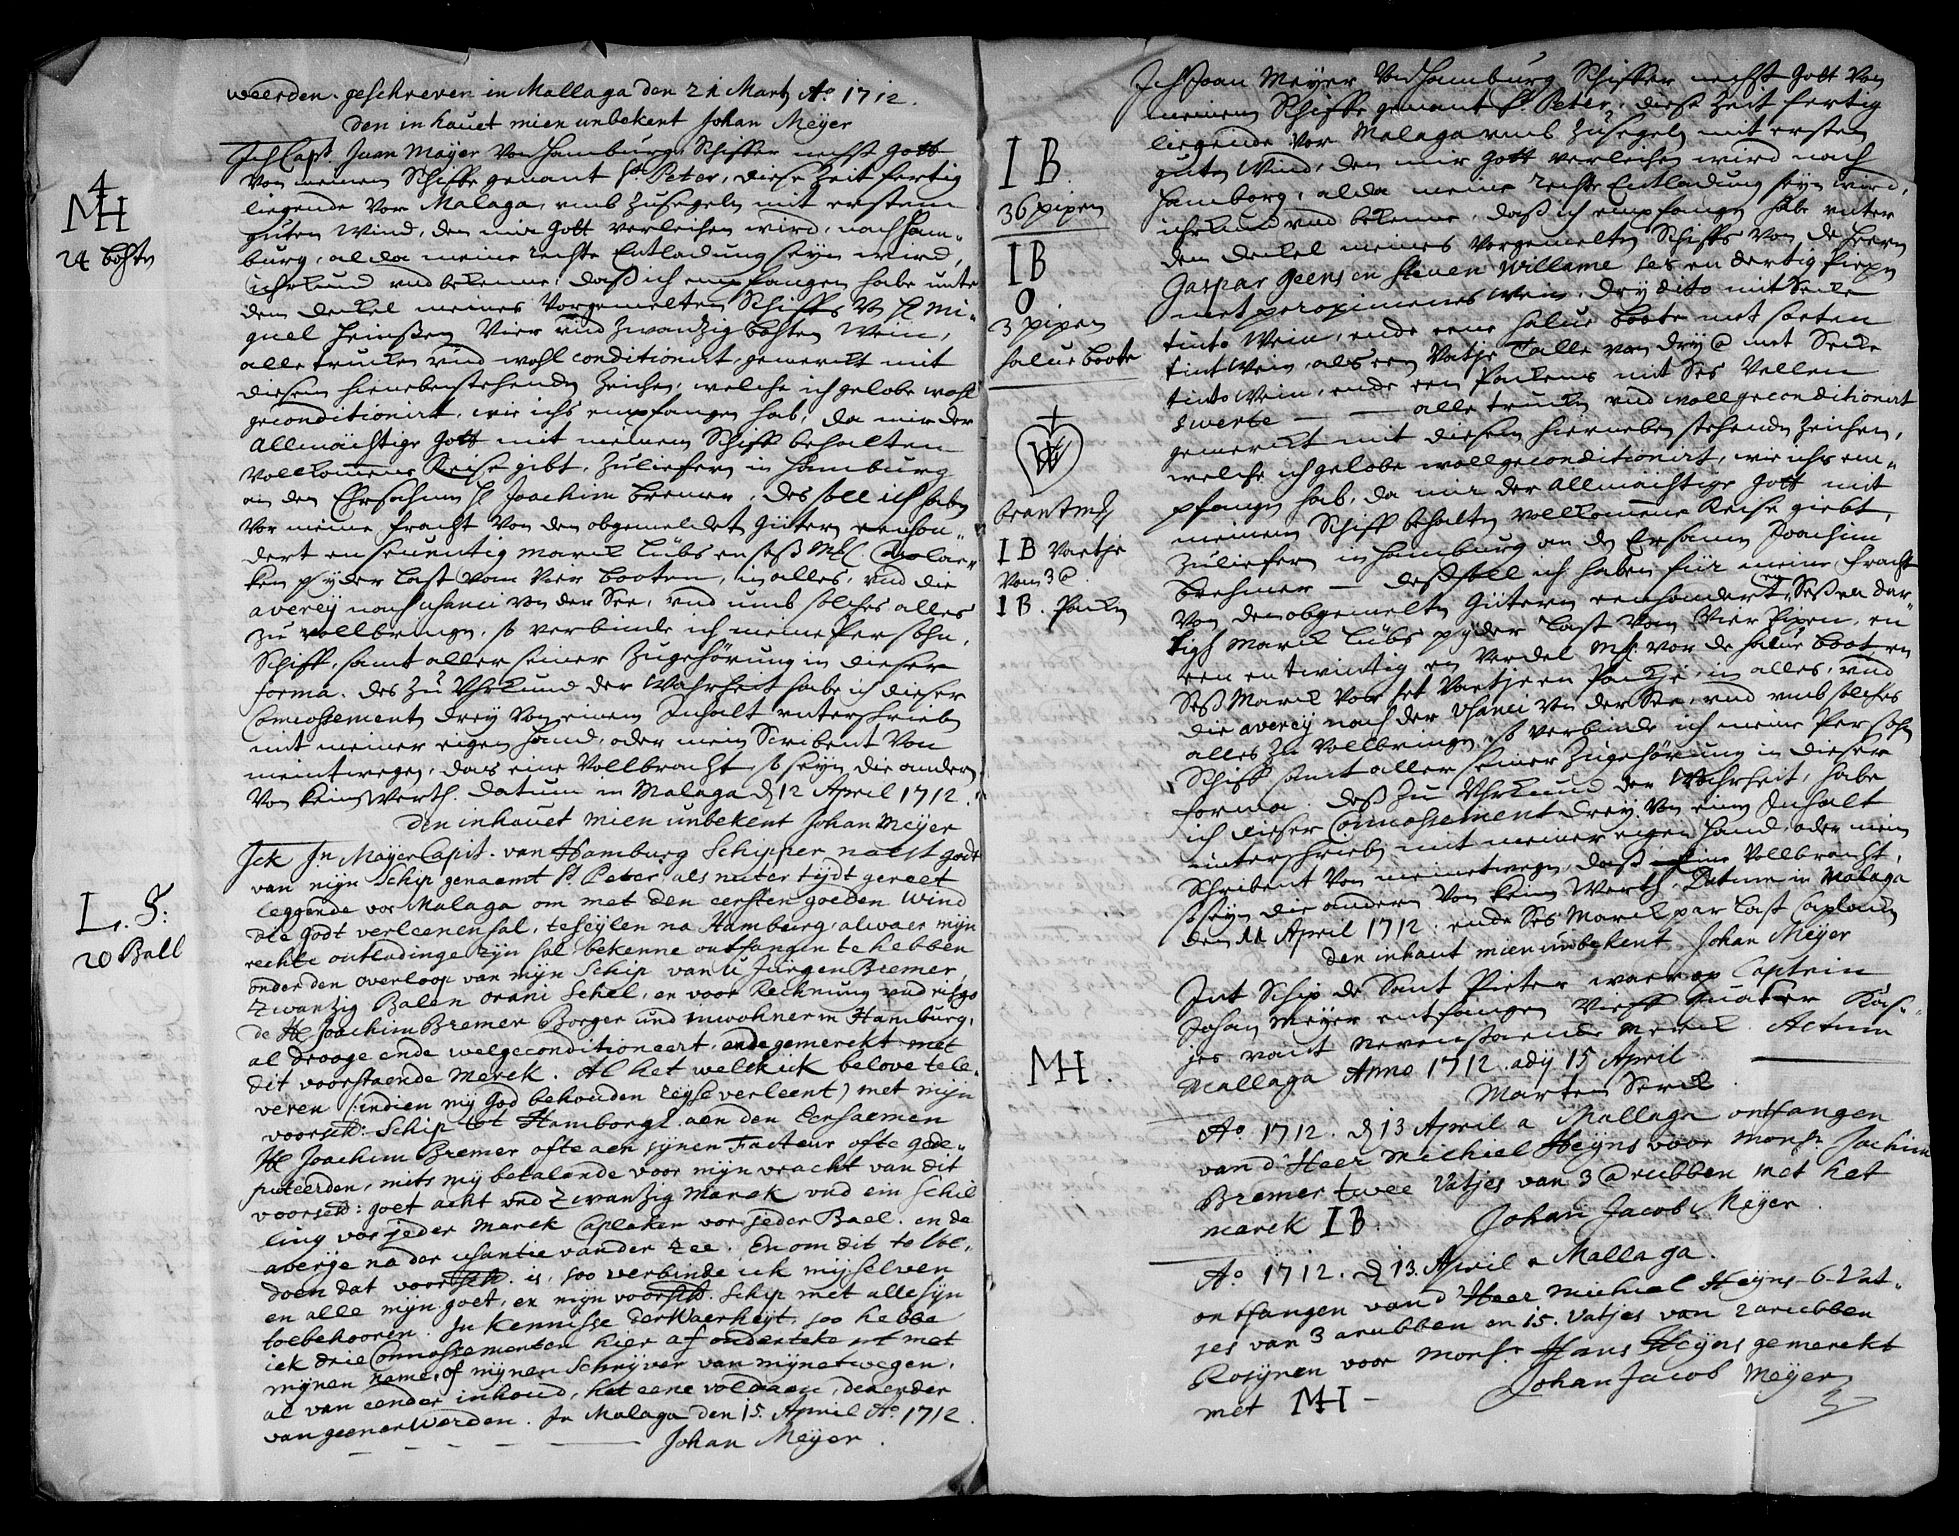 weerden. geschreven in Mallaga den 21 Martz Ao. 1712.
den inhauet mien unbekent Johan Meÿer
Ich Capt. Juan Mayer von Hamburg Schiffer nechst Gott
von meinem Schiffe genant St. Peter, diese Zeit fertig
liegende vor Malaga, umb zusegeln mit erstem
4
MH
24 bohten
guten Wind, den mir Gott verleihen wird, nach Ham-
burg, alda meine rechte Entladung seyn wird,
uhrkund und bekenne, daß ich empfangen habe unter
dem deckel meines vorgemelten Schiffs von H. Mi-
guel Heinßen vier und zwantzig bohten Wein,
alle trucken und wohl conditionirt, gemerckt mit
diesem hienebenstehenden Zeichen, welche ich gelobe wohl
geconditionirt, wie ichs empfangen hab, da mir der
Allmächtige Gott mit meinem Schiff behalten
vollkomene Reise gibt, zuliefern in Hamburg
an den Ehrsahmen H. Joachim Bremer, des soll ich haben
vor meine fracht von den obgemeldet gütern eenhon-
dert en seuentig marck lübs en seß Mk Caplae-
ken pr. jder last von vier booten, in alles, und die
averey nach usanci von der See, und umb solches alles
zu vollbringen, so verbinde ich meine Persohn,
Schiff, samt aller seiner Zugehörung in dieser
forma. des zu Uhrkund der Wahrheit habe ich dieser
Connossementen drey von einem Inhalt unterschrieben
mit meiner eigen Hand, oder mein Scribent von
meintwegen, das eine vollbracht, so seyn die andern
von keins Werth. Datum in Malaga d. 12 April 1712.
den inhauet mien unbekent Johan Meÿer
Ick Jn. Mayer Capit. van Hamburg Schipper naest godt
van mijn Schip genaemt St. Peter als nu ter tijdt gereet
leggende vor Malaga om met den eersten goeden Wind
L. S:
20 Ball
die godt verleenen sal, te seÿlen na Hamburg, alwaer mijn
rechte ontladinge zijn sal bekenne ontfangen te hebben
onder den overloop van mijn Schip van u Jürgen Bremer
Zwanzig Balen orani Schel, en voor Rechnung und risigo
de H. Joachim Bremer Borger und inwohner in Hamburg,
al drooge ende welgeconditioneert, ende gemerckt met
dit voorstaende merck. Al het welck ick belove tele-
veren (indien mij God behouden reijse verleent) met mijn
voorsch: Schip tot Hamborgh. aen den Eersaemen
H. Joachim Bremer ofte aen sijnen Facteur ofte gede-
puteerden, mits mij betalende voor mijn vracht van dit
voorsch: goet acht und Zwantzig marck und ein Schil
ling vor jeder Marck Caplaken vor jeder Bael. en de
averije na der usantie van der Zee. En om dit te vol-
doen dat voorsch. is, soo verbinde ick mijselven
en alle mijn goet, en mijn voorsch. Schip met alle sijn
toebehooren. In kennisse der Waerheijt, soo hebbe
ick drie Connossementen hier af onderteke nt met
mijnen name, of mijnen Schrijver van mijnetwegen,
al van eender inhoud, het eene voldaen, de ander
van geener Werden. In Malaga den 15. April Ao. 1712.
Johan Meÿer.
Ich Joan Meyer von Hamburg Schiffer nechst Gott von
meinem Schiffe genant St. Peter, diese Zeit fertig
liegende vor Malaga umb zusegeln mit ersten
guten Wind, den mir Gott verleihen wird nach
Hamborg, alda meine rechte Entladung seyn wird,
uhrkund und bekenne, daß ich empfangen habe unter
dem deckel meines vorgemelten Schiffs von de Heern
Gaspar Geens en Steven Willame ses en dertig Piepen
met peroximenes wein, dry dito mit Secke
tinto Wein, ende eene halve boote met soeten
tint wein, als een Vatje Calle van dry @ met Secke
tinto Wein, ende een Packens mit Ses Vellen
swerte — — alle trucken und wollgeconditionirt
gemerckt mit diesem hierneben stehende Zeichen,
welche ich gelobe wollgeconditionirt, wie ichs em-
pfangen hab, da mir der Allmächtige Gott mit
meinem Schiff behalten vollkomene Reise giebt,
zuliefern in Hamburg an dn Ersamen Joachim
Brehmer — deß soll ich haben für meine fracht
von den obgemelten Gütern eenhondert en Seß en dar-
tigh Marck lübs pr. jder last van Vier Pipen, en
een en twintig en verdel Mk vor de halve boot en
Seß Marck vor het Vaetje en Packje, in alles, und
die averey nach der usanci von der See, und umb solches
alles zu vollbringen, so verbinde ich meine Persohn
Schiff samt aller seiner Zugehörung in dieser
forma. deß zu Uhrkund der Wahrheit, habe
ich dieser Connossementen drey von einem Inhalt
unterschrieben mit meiner eigen Hand, oder mein
Schribent von meinetwegen, daß eine vollbracht,
so seyn die andern von kein Werth. Datum in Malaga
den 11 April 1712. ende Ses Marck par last Caplacken
den inhaut mien unbekent Johan Meÿer
I B.
36 pipen
I B
O
3 pipen
halve boote
W
I B Vaetje
Vom 3 @
I B. Packen
Int Schip de Sant Pieter waerop Captein
Johan Meyer entfangen Kas-
jes vant nevenstaende merck. Actum
Mallaga Anno 1712. ady 15 April
MH.
Marten Serck
Ao. 1712. d 13 April a Mallaga ontfangen
van d'Heer Michiel Heijns voor Monsr. Jochim
Bremer twee Vatjes van 3 @rubben met het
marck I B. Johan Jacob Meÿer.
Ao. 1712. d 13. April a Mallaga.
ontfangen van d'Heer Michiel Heijns 6 Vat-
jes van 3 arubben en 15. Vatjes van 2 arubben
Rosijnen voor Monsr. Hans Heijns gemerckt
met MH – Johan Jacob Meÿer